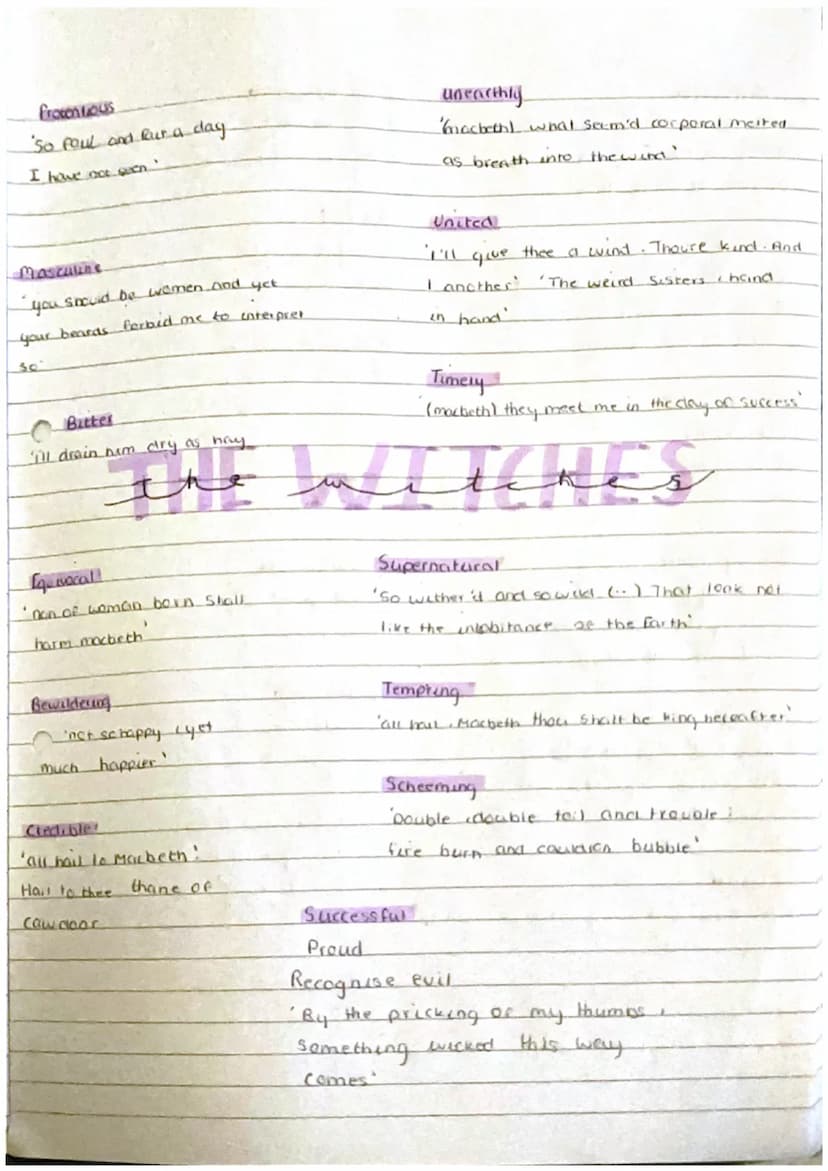 'So foul and fair a day
I have not seen'
Masculine
'you should be women and yet
your beards forbid me to interpret
so'
Bitter
'i'll drain him dry as hay
unearthly
'(macbeth) what seem'd corporal melted
as breath into the wind'
United
'I'll give thee a wind. Thoure kind. And
I another' 'The weird sisters, hand
in hand'
Timely
(macbeth) they meet me in the day of success'
THE WITCHES
the witches
Equivocal
'non of woman born shall
harm macbeth'
Bewildering
'not so happy, yet
much happier'
Credible
'all hail to Macbeth!
Hail to thee thane of
cawdoor
Supernatural
'So wither'd and so wild (..) That look not
like the inhabitance of the Earth'
Tempting
'all hail, Macbeth thou shalt be king hereafter'
Scheeming
'Double, double toil and trouble;
fire burn and cauldron bubble'
Successful
Proud
Recognise evil
'By the pricking of my thumbs,
Something wicked this way
comes'